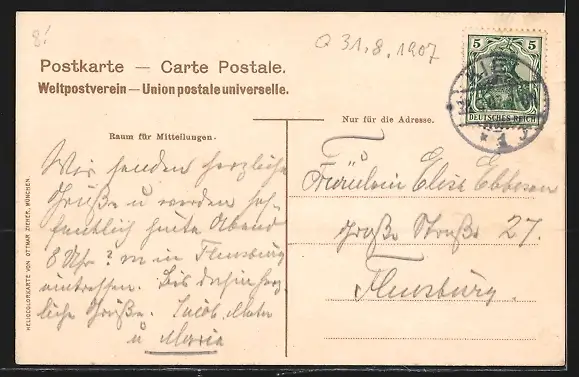 8!
Q 31.8.1907
Postkarte — Carte Postale.
Weltpostverein — Union postale universelle.
5 5
DEUTSCHES REICH
* 1
Nur für die Adresse.
Raum für Mitteilungen.
Wir senden herzliche
Grüße u werden hof-
fentlich heute Abend
8 Uhr ? m in Flensburg
eintreffen. Bis dahin herz-
liche Grüße. Jacob, Mutter
u Maria
Fräulein Elise Ebbesen
Große Straße 27.
Flensburg.
HELIOCOLORKARTE VON OTTMAR ZIEHER, MÜNCHEN.